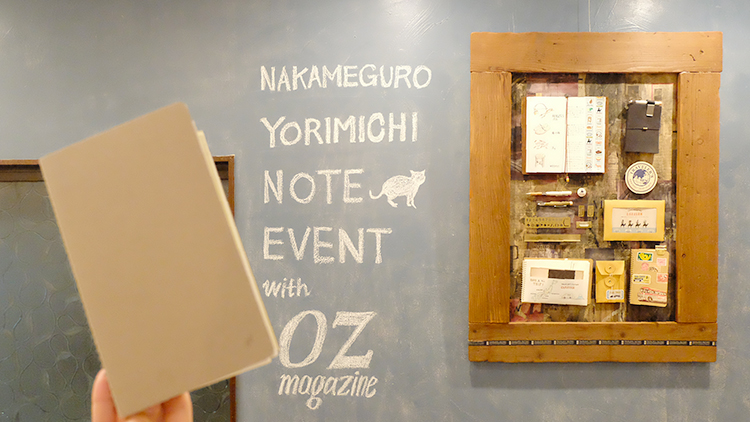 NAKAMEGURO
YORIMICHI
NOTE
EVENT
with
OZ
magazine